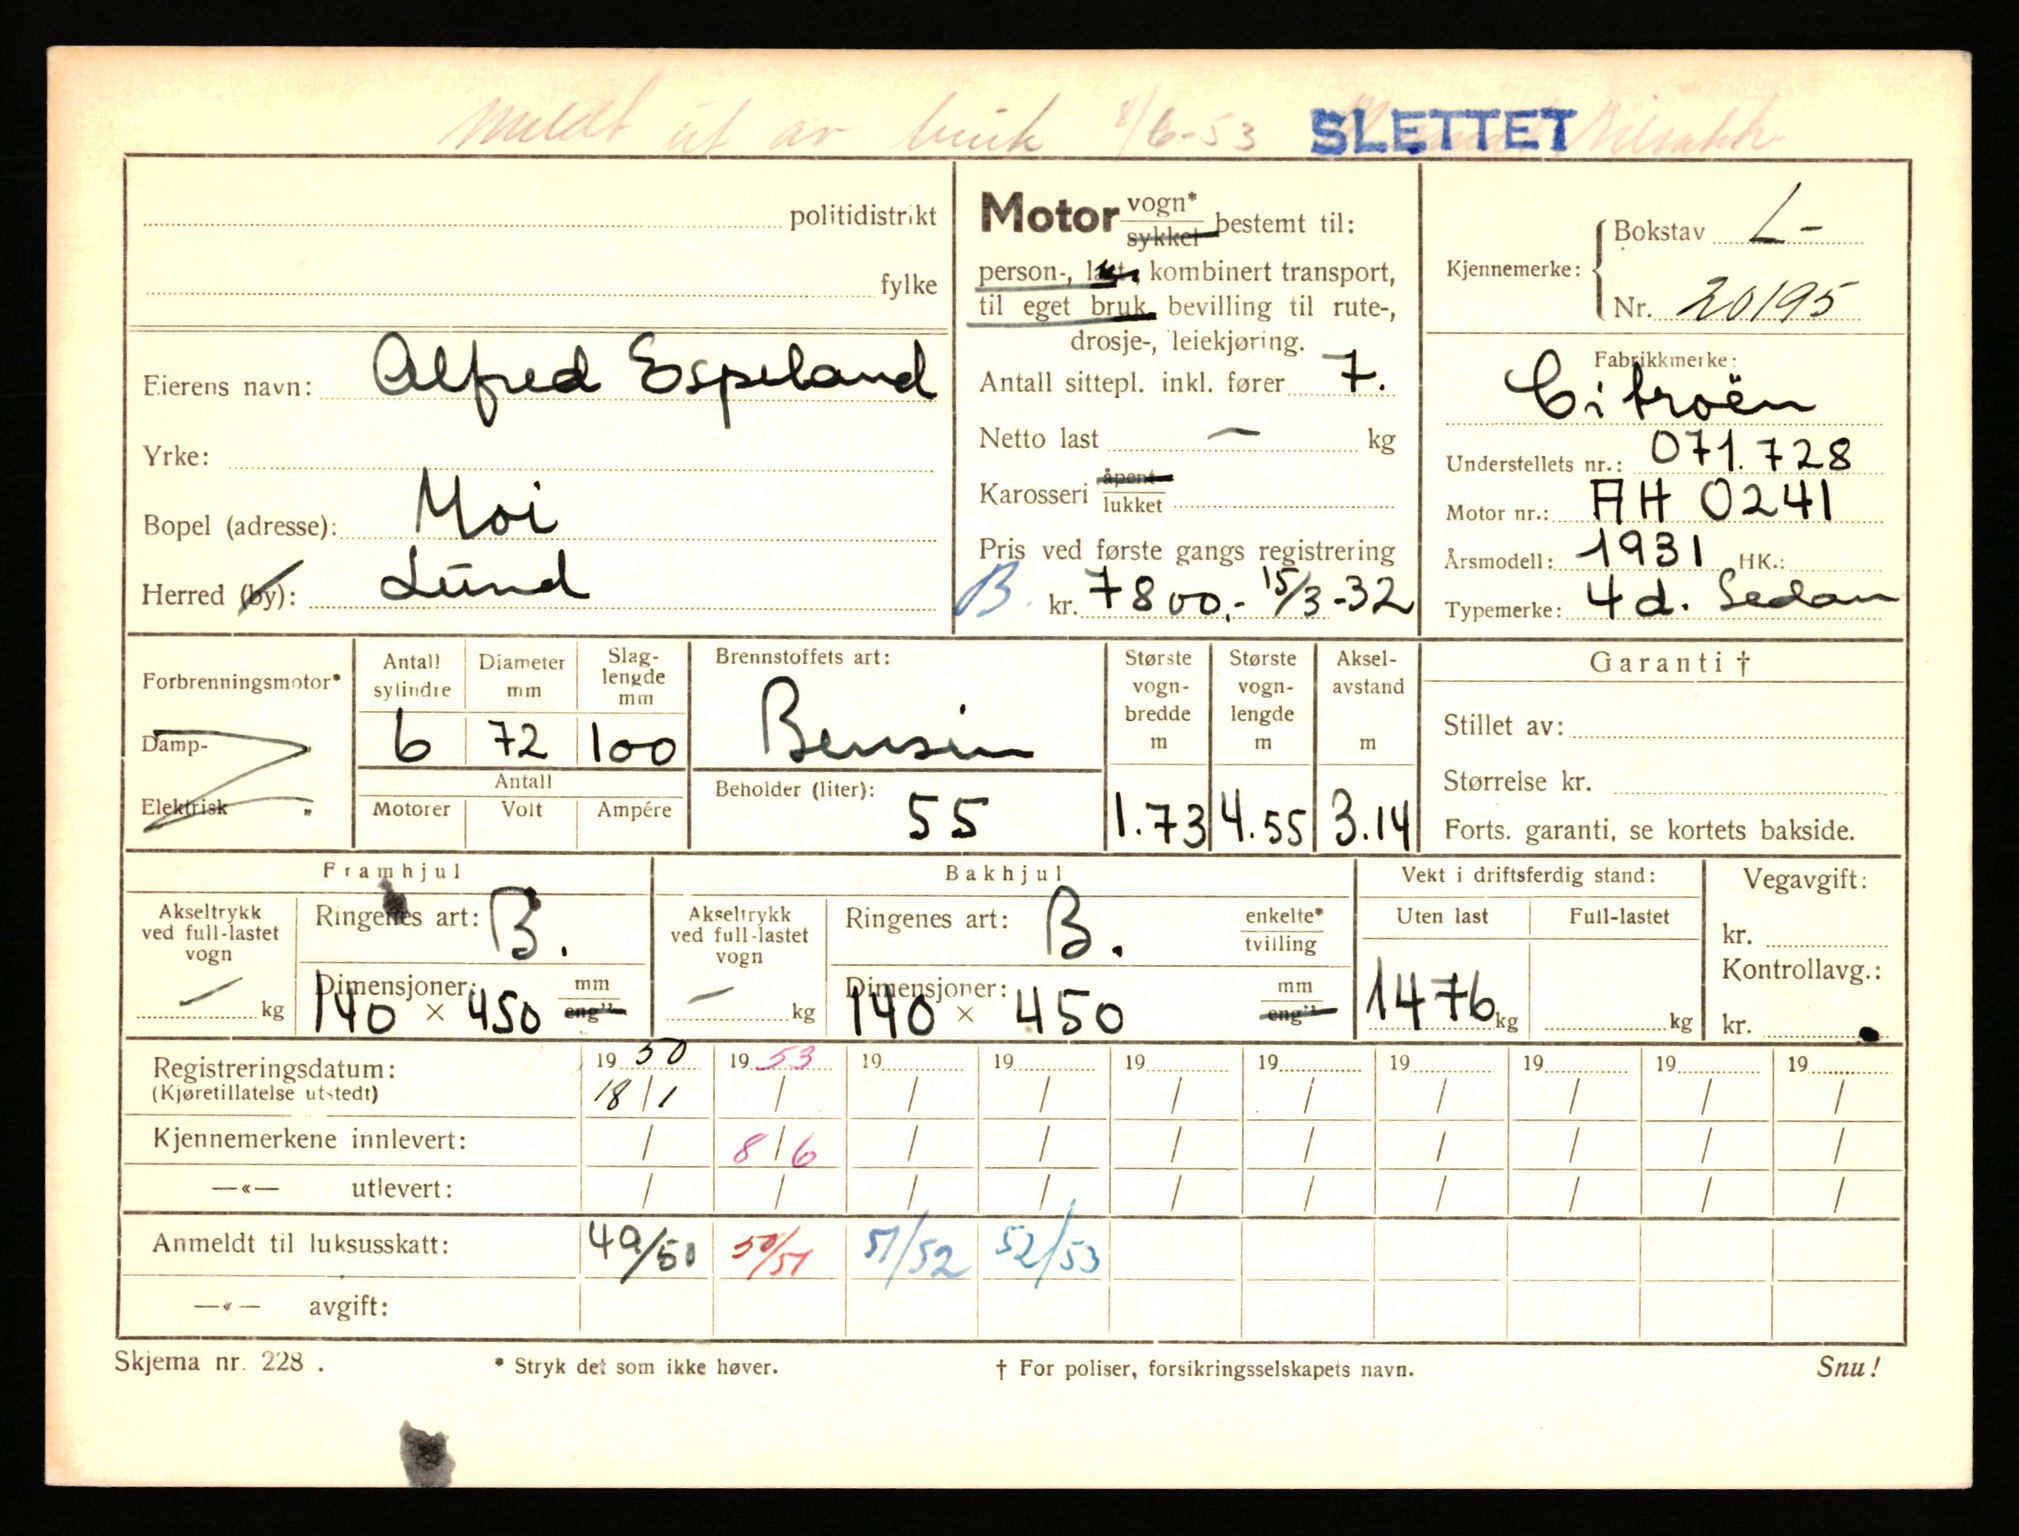 Meldt ut av bruk 8/6-53 SLETTET
politidistrikt
fylke
Eierens navn: Alfred Espeland
Yrke:
Bopel (adresse): Moi
Herred (by): Lund
Motor vogn* sykkel bestemt til:
person-, last-, kombinert transport,
til eget bruk, bevilling til rute-,
drosje-, leiekjøring.
Antall sittepl. inkl. fører 7.
Netto last — kg
Karosseri åpent lukket
Pris ved første gangs registrering
B. kr. 7800,- 15/3-32
Kjennemerke: Bokstav L-
Nr. 20195
Fabrikkmerke:
Citroën
Understellets nr.: 071.728
Motor nr.: AH 0241
Årsmodell: 1931 HK.:
Typemerke: 4 d. Sedan
Forbrenningsmotor*
Damp- "
Elektrisk "
Antall sylindre Diameter mm Slag-lengde mm
6 72 100
Antall
Motorer Volt Ampére
Brennstoffets art:
Bensin
Beholder (liter):
55
Største vogn-bredde m Største vogn-lengde m Aksel-avstand m
1.73 4.55 3.14
Garanti †
Stillet av:
Størrelse kr.
Forts. garanti, se kortets bakside.
Framhjul
Akseltrykk ved full-lastet vogn
— kg
Ringenes art: B.
Dimensjoner: mm
140 × 450 eng"
Bakhjul
Akseltrykk ved full-lastet vogn
— kg
Ringenes art: B. enkelte* tvilling
Dimensjoner: mm
140 × 450 eng"
Vekt i driftsferdig stand:
Uten last Full-lastet
1476 kg kg
Vegavgift:
kr.
Kontrollavg.:
kr.
Registreringsdatum: 19 50 19 53 19 19 19 19 19 19 19 19
(Kjøretillatelse utstedt) 18/1 / / / / / / / / /
Kjennemerkene innlevert: / 8/6 / / / / / / / /
—«— utlevert: / / / / / / / / / /
Anmeldt til luksusskatt: 49/50 50/51 51/52 52/53
—«— avgift:
Skjema nr. 228. * Stryk det som ikke høver. † For poliser, forsikringsselskapets navn. Snu!